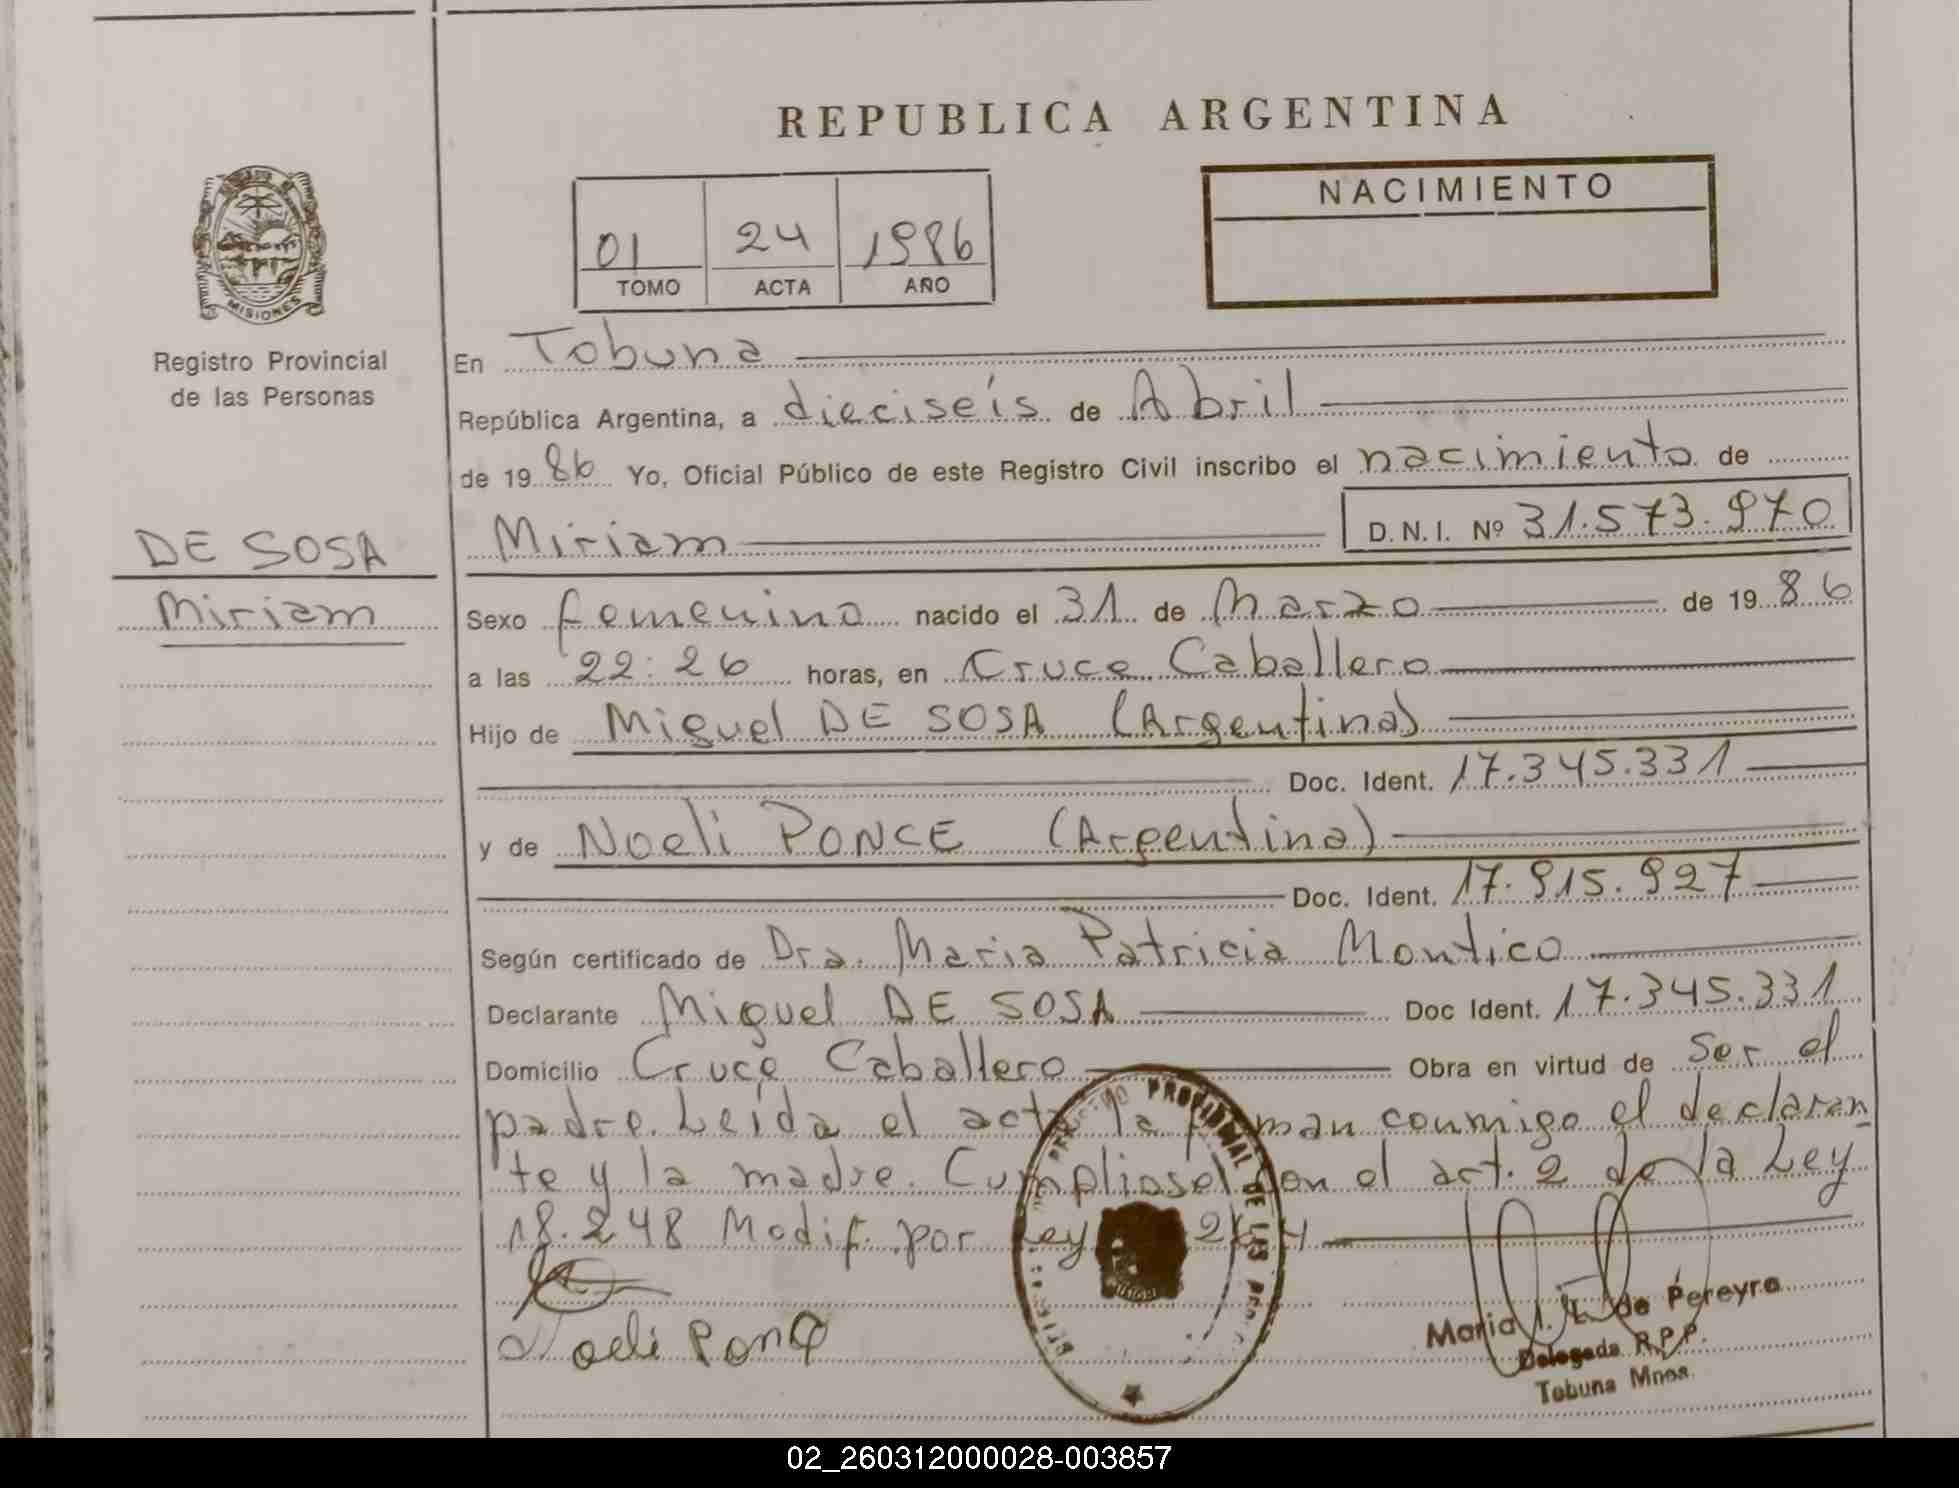 REPUBLICA ARGENTINA
MISIONES
Registro Provincial
de las Personas
DE SOSA
Miriam
01 24 1986
TOMO ACTA AÑO
NACIMIENTO
En Tobuna
República Argentina, a dieciseís de Abril
de 19 86 Yo, Oficial Público de este Registro Civil inscribo el nacimiento de
Miriam D.N.I. Nº 31.573.970
Sexo femenino nacido el 31 de Marzo de 19 86
a las 22:26 horas, en Cruce Caballero
Hijo de Miguel DE SOSA (Argentina)
Doc. Ident. 17.345.331
y de Noeli PONCE (Argentina)
Doc. Ident. 17.915.927
Según certificado de Dra. Maria Patricia Montico
Declarante Miguel DE SOSA Doc Ident. 17.345.331
Domicilio Cruce Caballero Obra en virtud de Ser el
padre. Leída el acta la firman conmigo el declaran
te y la madre. Cumpliose con el art. 2 de la Ley
18.248 Modif. por Ley
Noeli Ponce
PROVINCIAL DE LAS
Maria I. L. de Pereyra
Delegada R.P.P.
Tobuna Mnes.
02_260312000028-003857